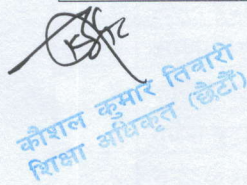 कौशल कुमार तिवारी
शिक्षा अधिकृत (छैटौं)